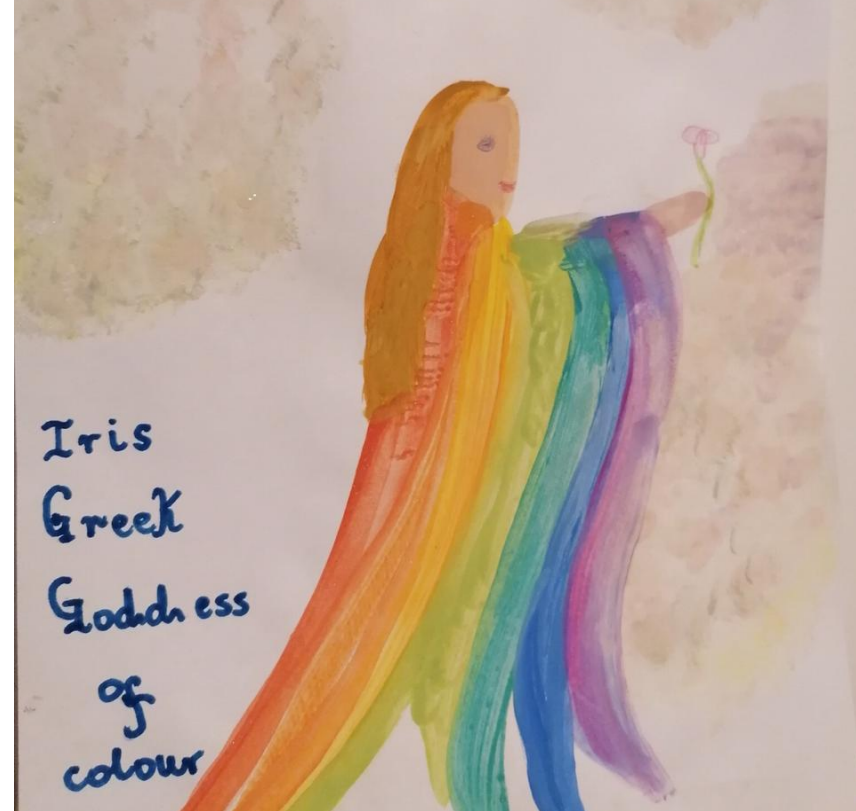 Iris
Greek
Goddess
of
colour